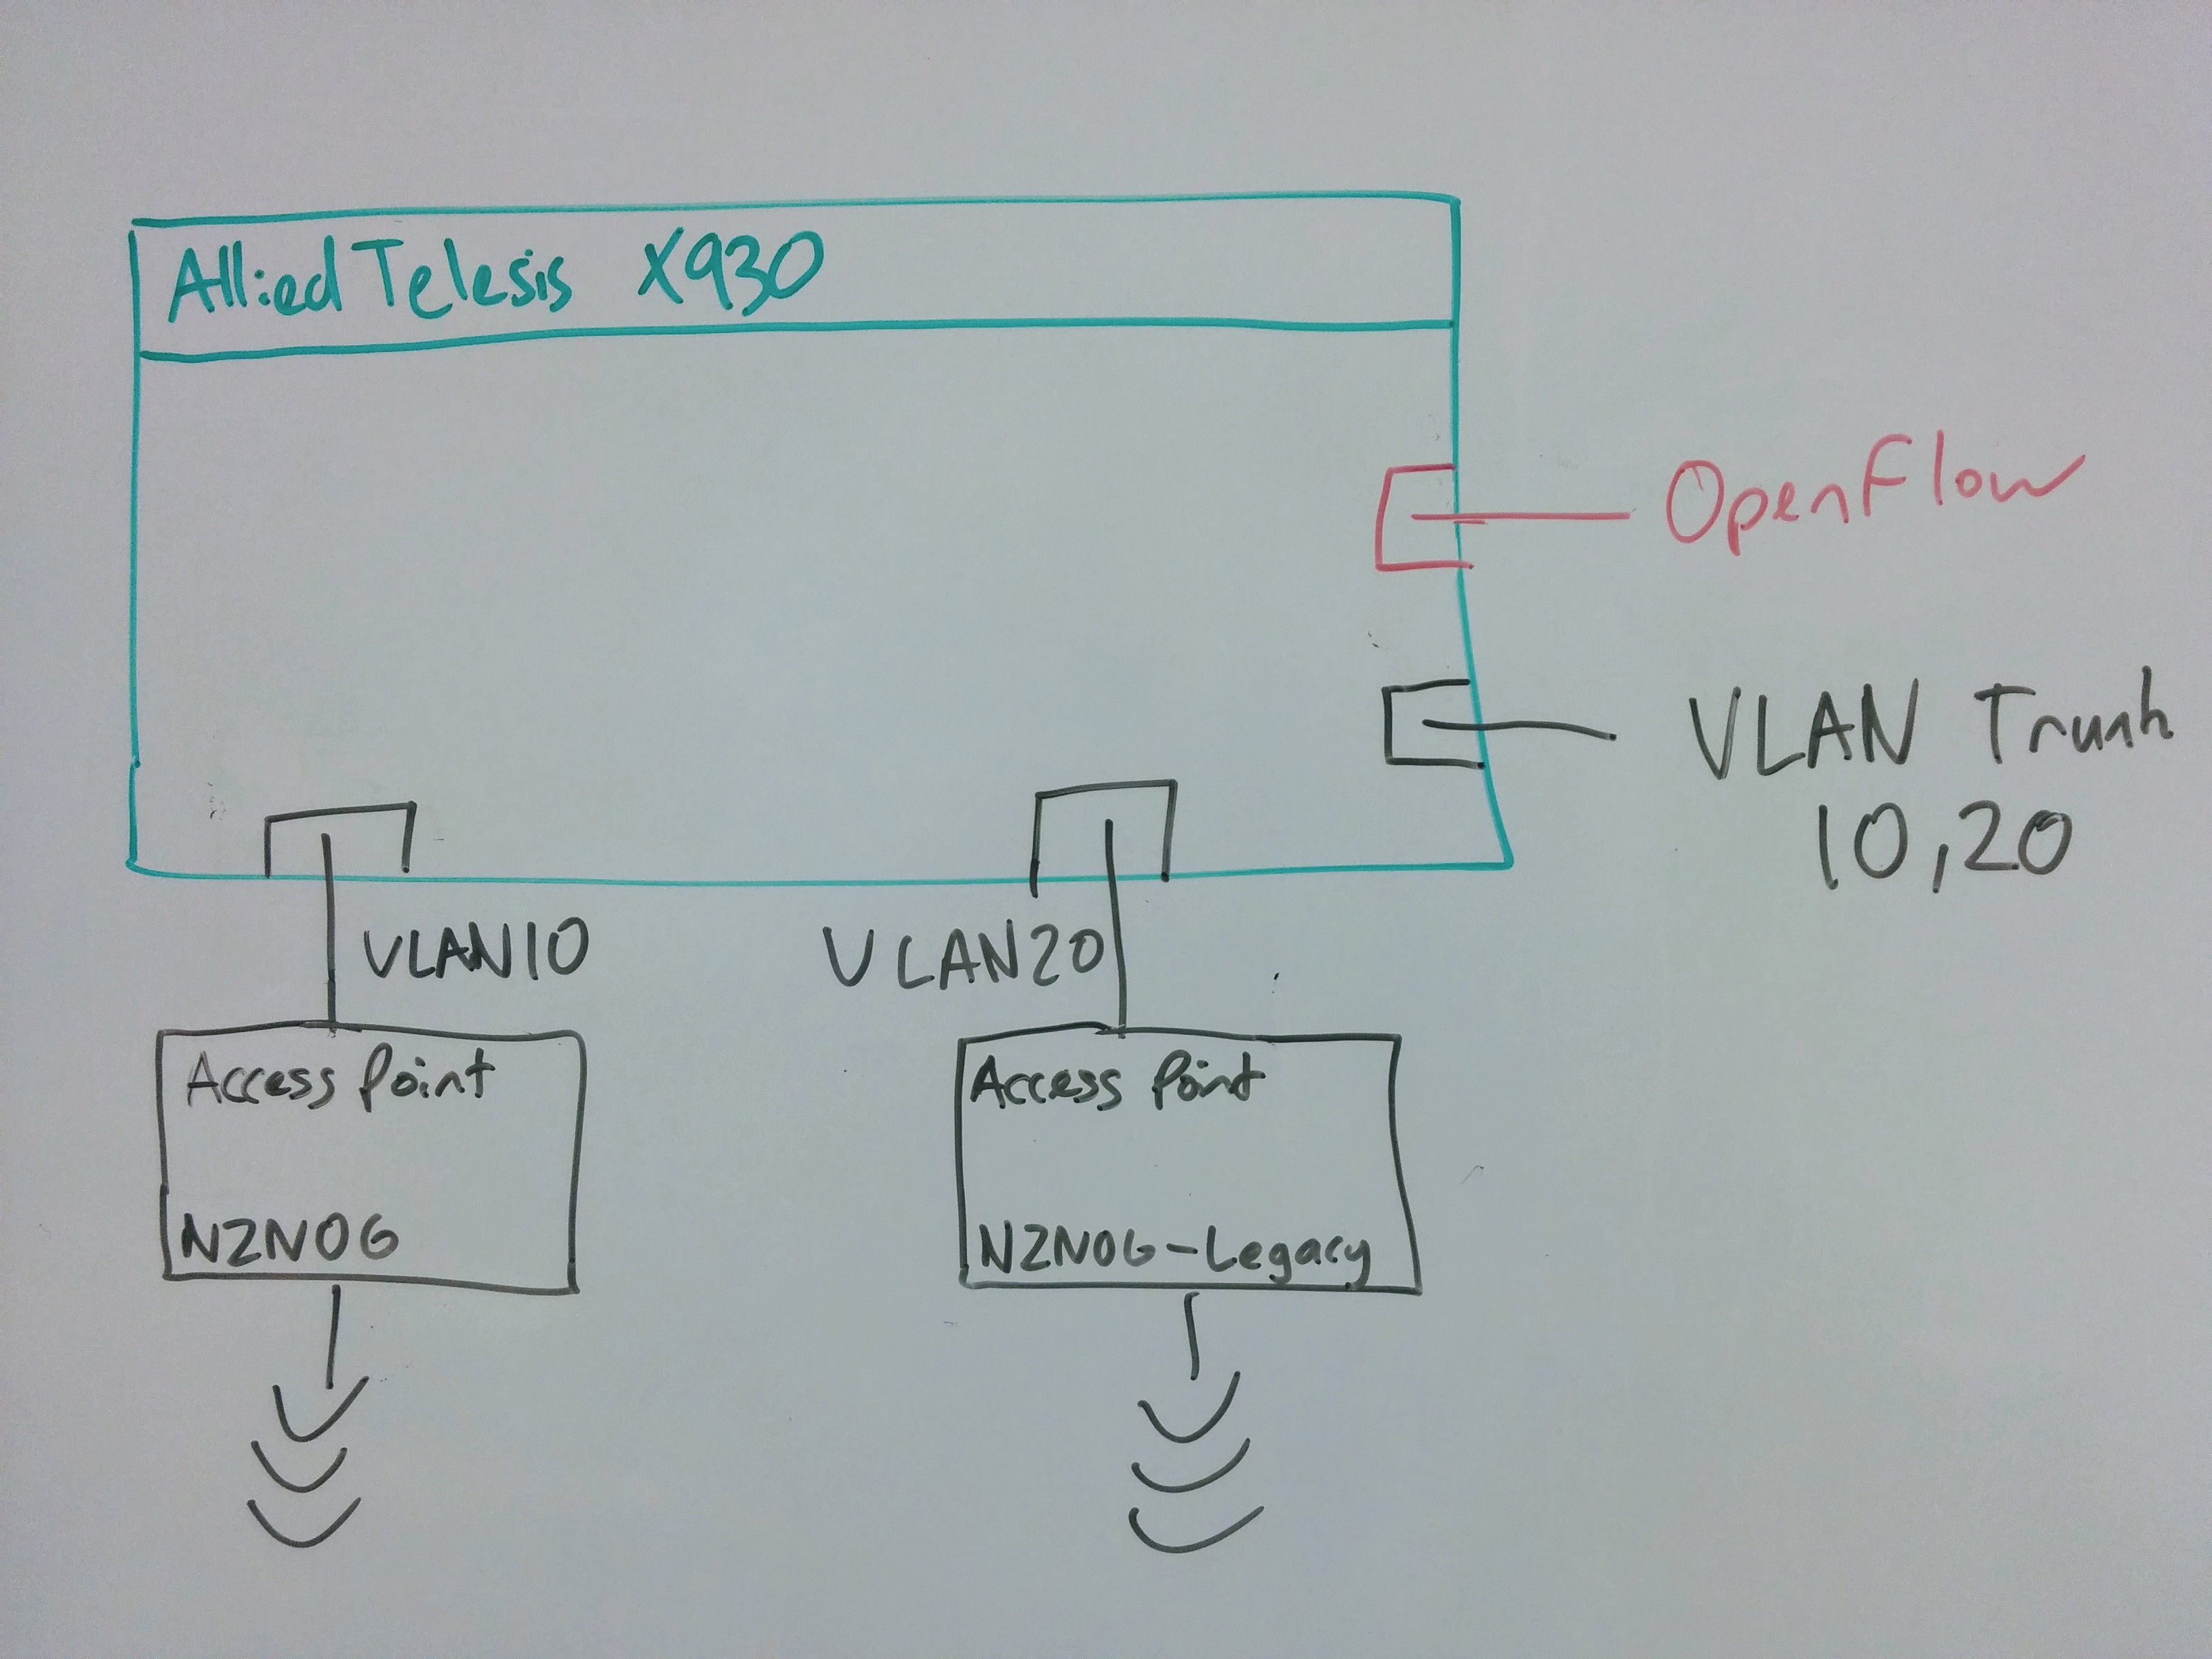 Allied Telesis x930
OpenFlow
VLAN Trunk
10,20
VLAN10
VLAN20
Access Point
NZNOG
Access Point
NZNOG-Legacy